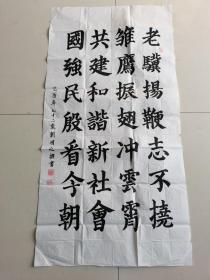 老驥揚鞭志不撓
雏鷹振翅冲雲霄
共建和諧新社會
國強民殷看今朝